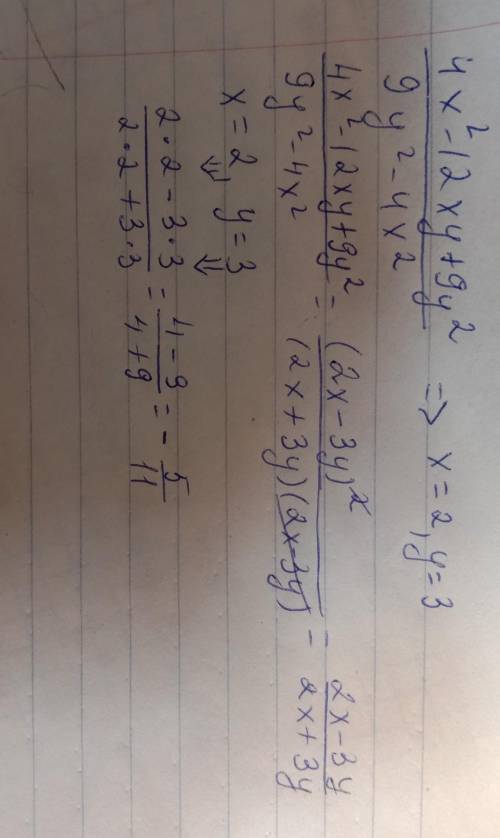 (4x²-12xy+9y²)/(9y²-4x²) => x=2, y=3
(4x²-12xy+9y²)/(9y²-4x²) = (2x-3y)²/((2x+3y)(2x-3y)) = (2x-3y)/(2x+3y)
x=2, y=3
⇓ ⇓
(2·2-3·3)/(2·2+3·3) = (4-9)/(4+9) = -5/11